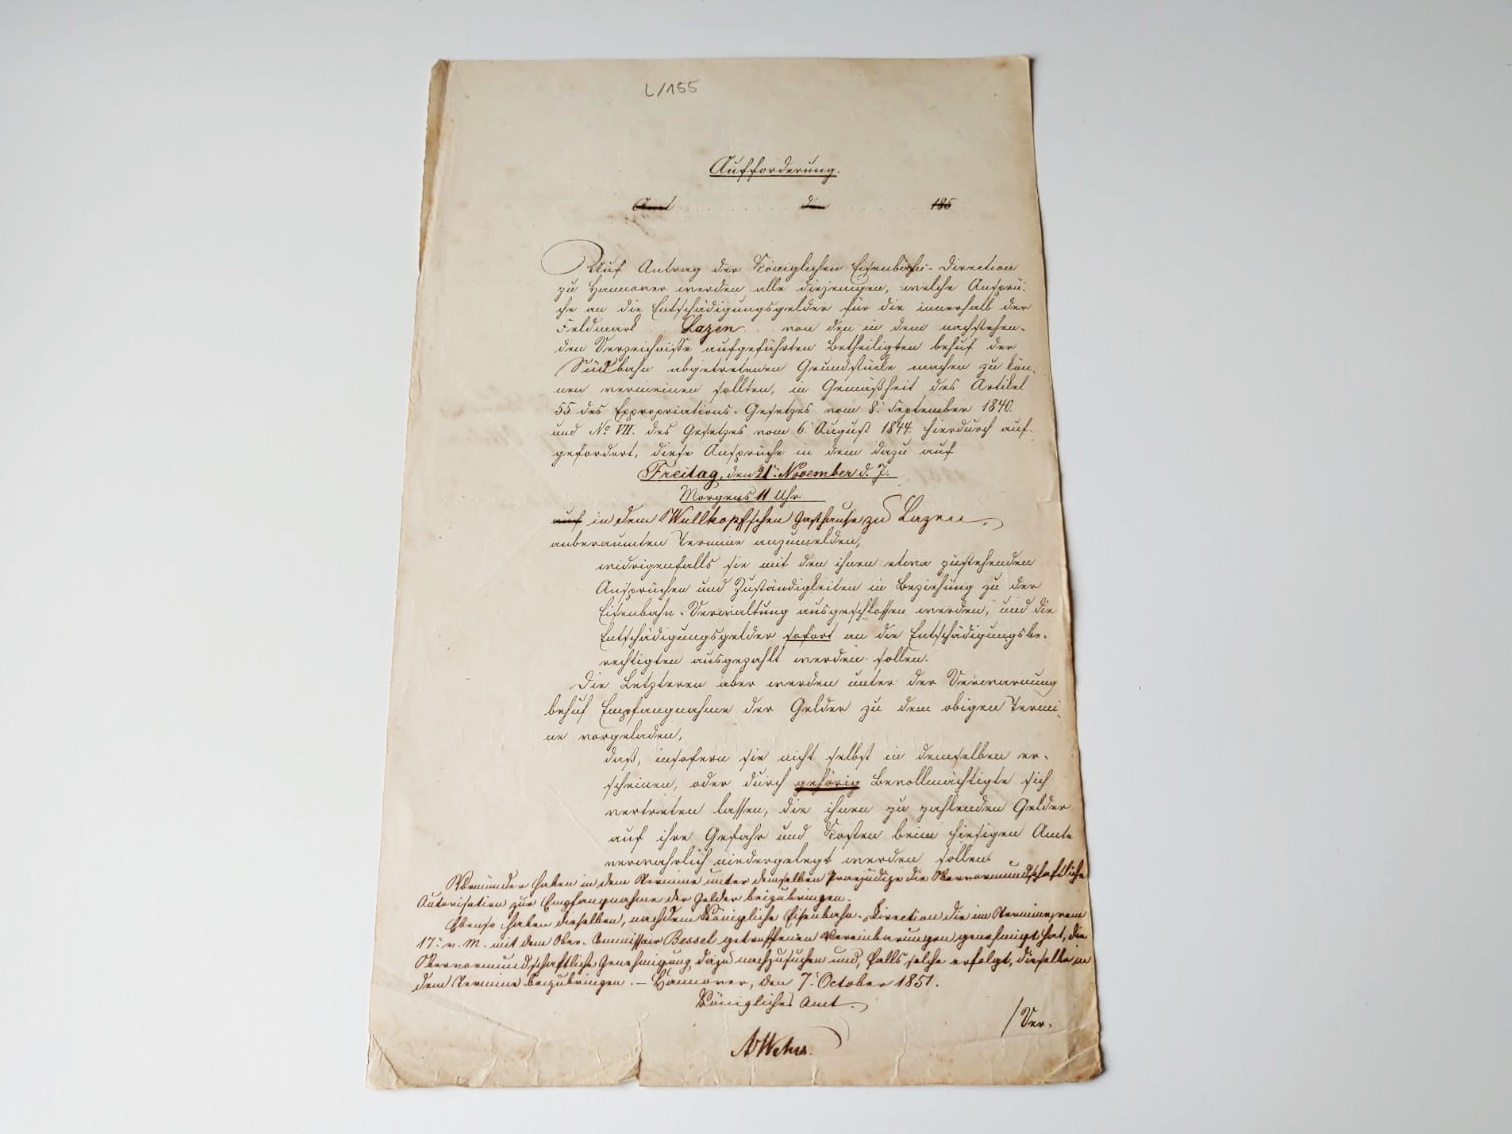 L/155
Aufforderung.
Amt den 185
Auf Antrag der Königlichen Eisenbahn-Direction
zu Hannover werden alle diejenigen, welche Ansprü-
che an die Entschädigungsgelder für die innerhalb der
Feldmark Lazen von den in dem nachstehen-
den Verzeichnisse aufgeführten Betheiligten behuf der
Südbahn abgetretenen Grundstücke machen zu kön-
nen vermeinen sollten, in Gemäßheit des Artikel
55 des Expropriations-Gesetzes vom 8. September 1840.
und No VII. des Gesetzes vom 6. August 1844 hierdurch auf-
gefordert, diese Ansprüche in dem dazu auf
Freitag, den 21. November d. J.
Morgens 11 Uhr
auf in dem Wallkopfschen Gasthause zu Lazen.
anberaumten Termine anzumelden,
widrigenfalls sie mit den ihnen etwa zustehenden
Ansprüchen und Zuständigkeiten in Beziehung zu der
Eisenbahn-Verwaltung ausgeschlossen werden, und die
Entschädigungsgelder sofort an die Entschädigungsbe-
rechtigten ausgezahlt werden sollen.
Die Letzteren aber werden unter der Verwarnung
behuf Empfangnahme der Gelder zu dem obigen Termi-
ne vorgeladen,
daß, insofern sie nicht selbst in demselben er-
scheinen, oder durch gehörig Bevollmächtigte sich
vertreten lassen, die ihnen zu zahlenden Gelder
auf ihre Gefahr und Kosten beim hiesigen Amte
verwahrlich niedergelegt werden sollen.
Vormünder haben in dem Termine unter demselben Praejudize die Obervormundschaftliche
Autorisation zur Empfangnahme der Gelder beizubringen.
Ebenso haben dieselben, nachdem Königliche Eisenbahn-Direction die im Termine vom
17. v. M. mit dem Ober-Commissair Bessel getroffenen Vereinbarungen genehmigt hat, die
Obervormundschaftliche Genehmigung dazu nachzusuchen und, falls solche erfolgt, dieselbe in
dem Termine beizubringen. — Hannover, den 7. October 1851.
Königliches Amt.
/Ver.